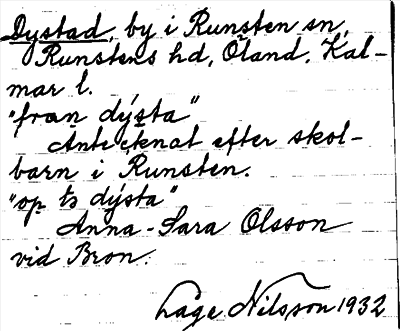 Dystad, by i Runsten sn,
Runstens hd, Öland. Kal-
mar l.
"fræn dýsta"
Antecknat efter skol-
barn i Runsten.
"op ts dýsta"
Anna-Sara Olsson
vid Bron.
Lage Nilsson 1932